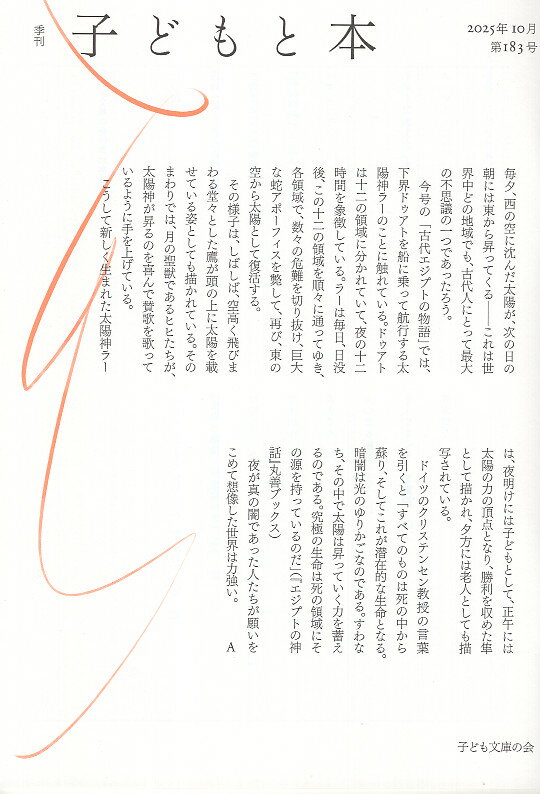 季刊
子どもと本
2025年10月
第183号
毎夕、西の空に沈んだ太陽が、次の日の
朝には東から昇ってくる――これは世
界中どの地域でも、古代人にとって最大
の不思議の一つであったろう。
今号の「古代エジプトの物語」では、
下界ドゥアトを船に乗って航行する太
陽神ラーのことに触れている。ドゥアト
は十二の領域に分かれていて、夜の十二
時間を象徴している。ラーは毎日、日没
後、この十二の領域を順々に通ってゆき、
各領域で、数々の危難を切り抜け、巨大
な蛇アポーフィスを斃して、再び、東の
空から太陽として復活する。
その様子は、しばしば、空高く飛びま
わる堂々とした鷹が頭の上に太陽を載
せている姿としても描かれている。その
まわりでは、月の聖獣であるヒヒたちが、
太陽神が昇るのを喜んで賛歌を歌って
いるように手を上げている。
こうして新しく生まれた太陽神ラー
は、夜明けには子どもとして、正午には
太陽の力の頂点となり、勝利を収めた隼
として描かれ、夕方には老人としても描
写されている。
ドイツのクリステンセン教授の言葉
を引くと「すべてのものは死の中から
蘇り、そしてこれが潜在的な生命となる。
暗闇は光のゆりかごなのである。すわな
ち、その中で太陽は昇っていく力を蓄え
るのである。究極の生命は死の領域にそ
の源を持っているのだ」（『エジプトの神
話』丸善ブックス）
夜が真の闇であった人たちが願いを
こめて想像した世界は力強い。　A
子ども文庫の会